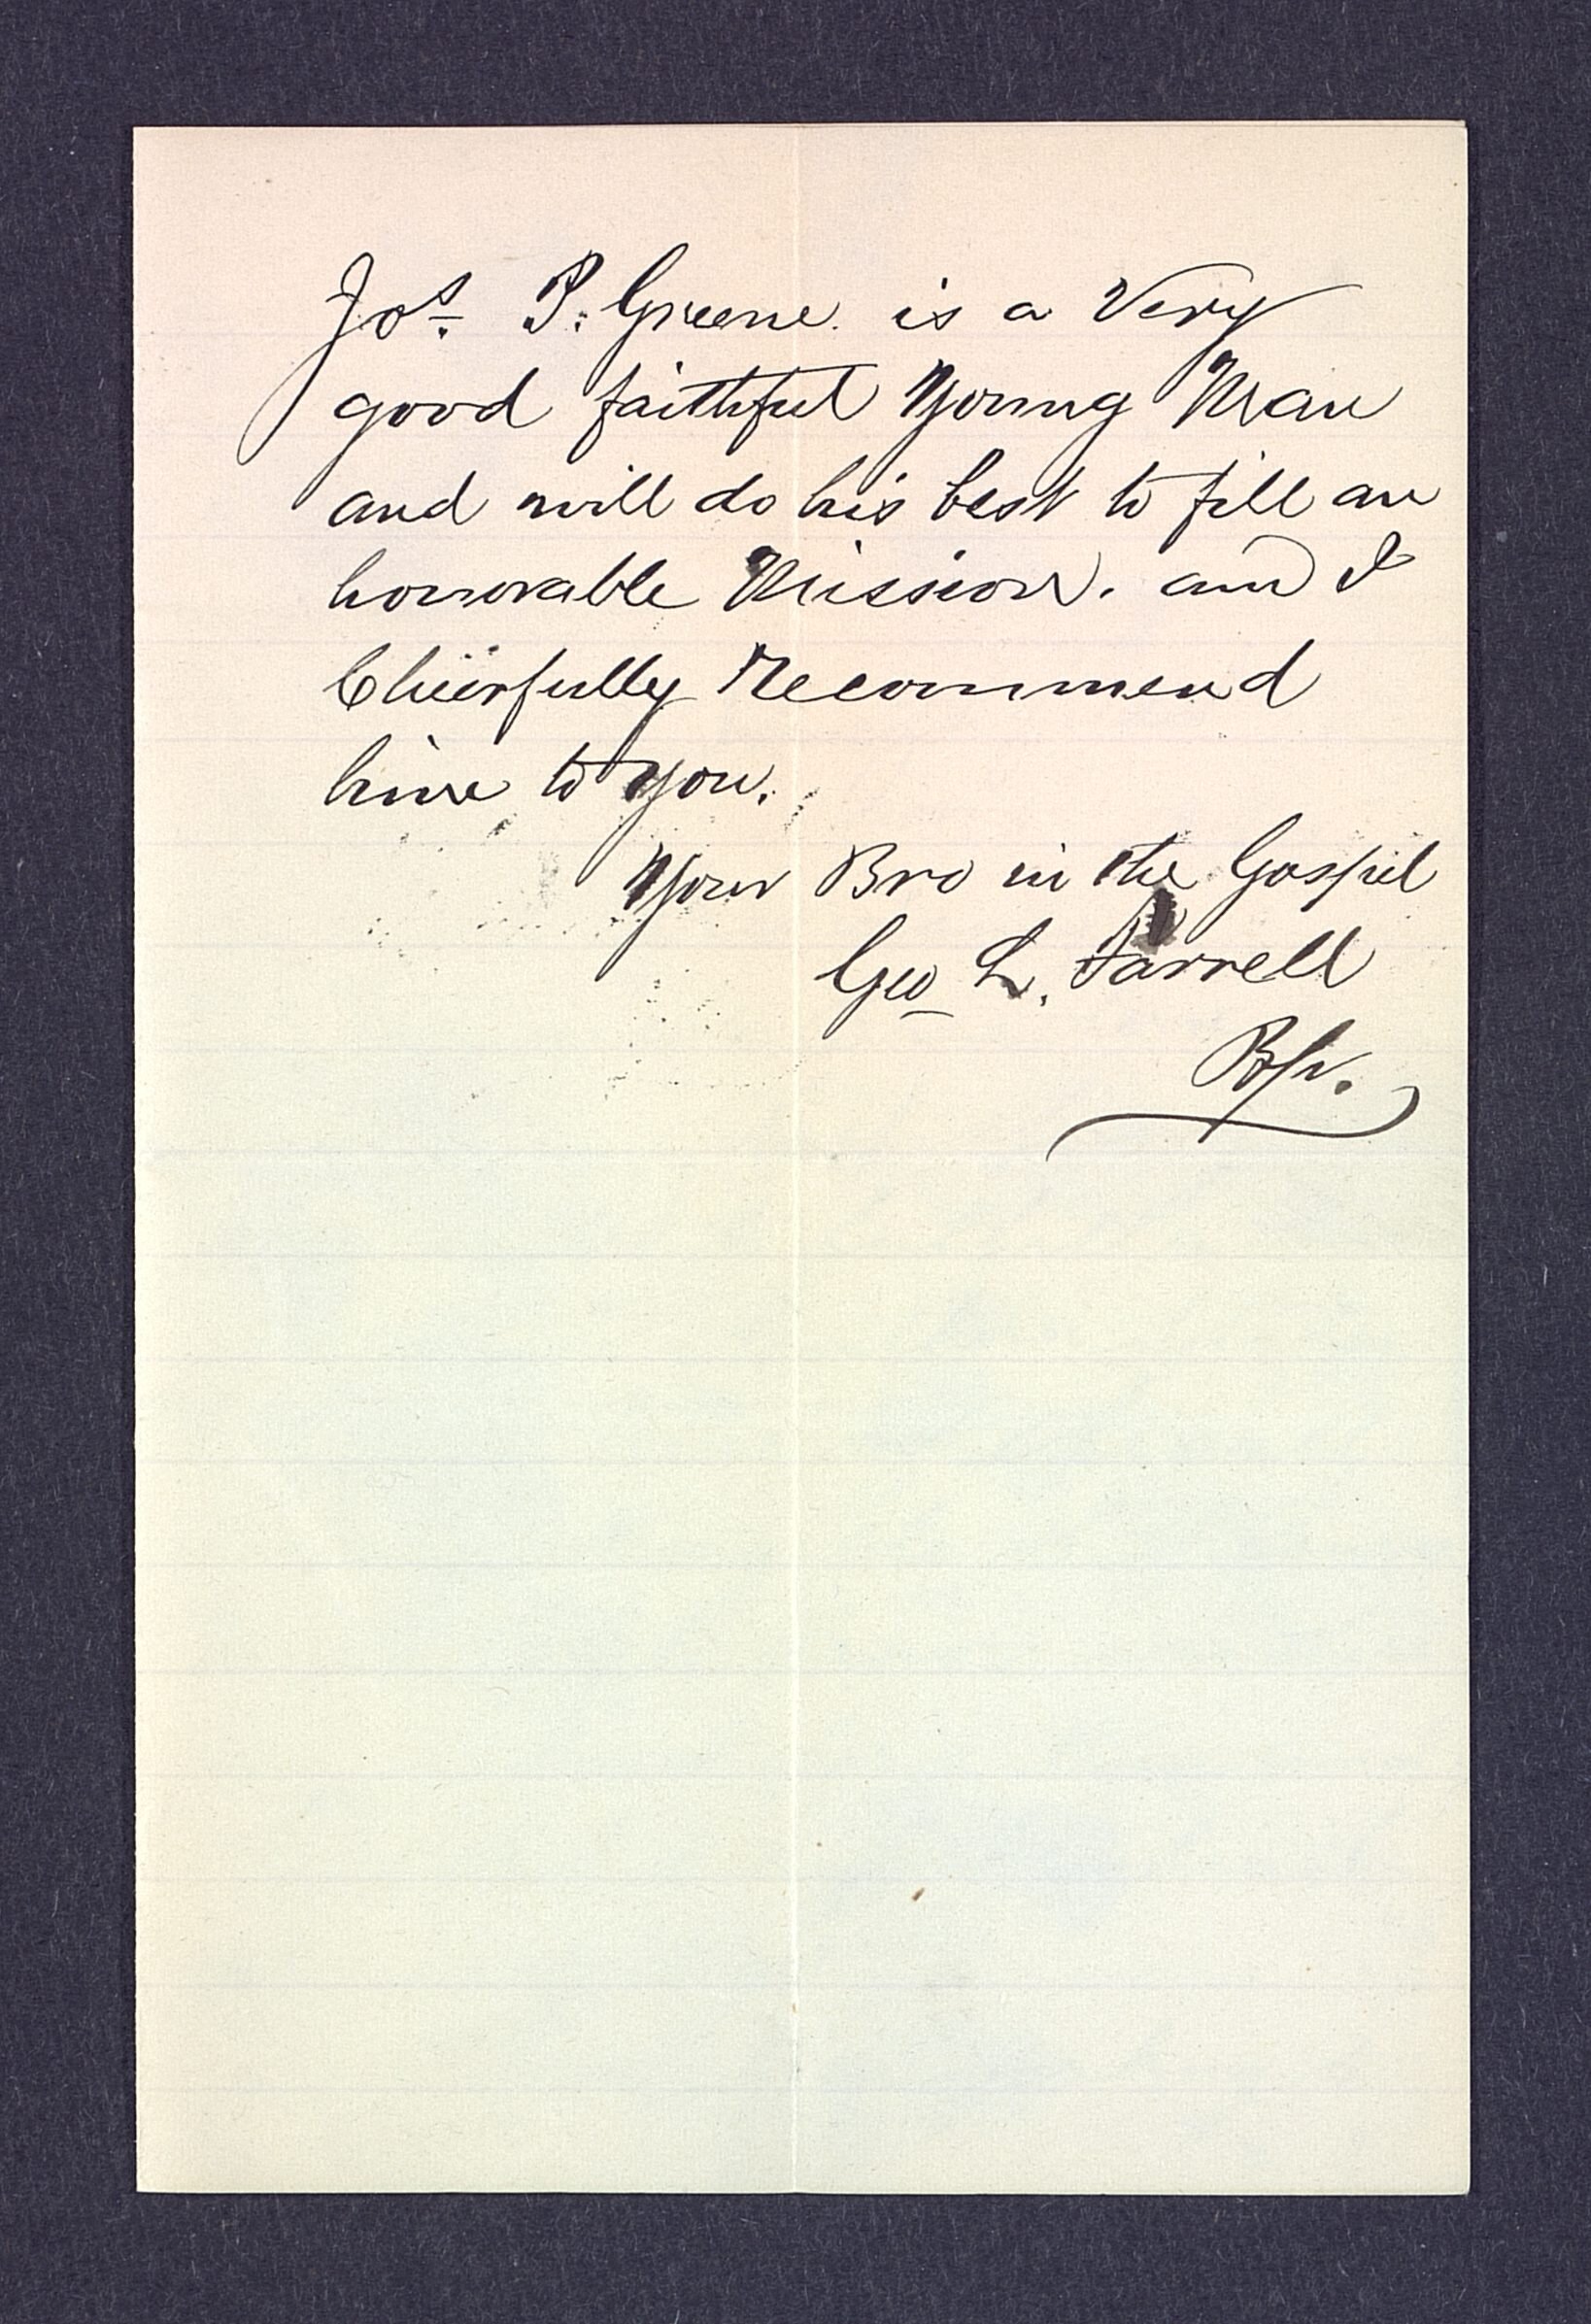 Jos. P. Greene. is a Very
good faithful Young Man
and will do his best to fill an
honorable Mission. and I
Cheerfully Recommend
him to you.
Your Bro in the Gospel
Geo L. Farrell
Bp.